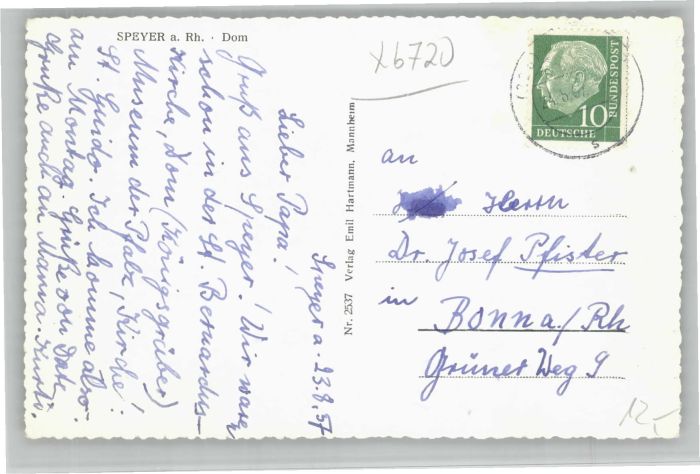 SPEYER a. Rh. · Dom
x6720
Speyer a. 23.8.57
Lieber Papa!
Gruß aus Speyer! Wir waren
schon in der St. Bernardus-
Kirche, Dom (Königsgräber)
Museum der Pfalz, Kirche
St. Guido. Ich komme also
am Montag. Grüße von
Grüße auch an Mama. Kurti.
Nr. 2537 Verlag Emil Hartmann, Mannheim
10
DEUTSCHE
BUNDESPOST
an
Herrn
Dr. Josef Pfister
in
Bonn a/Rh
Grüner Weg 9
12,-